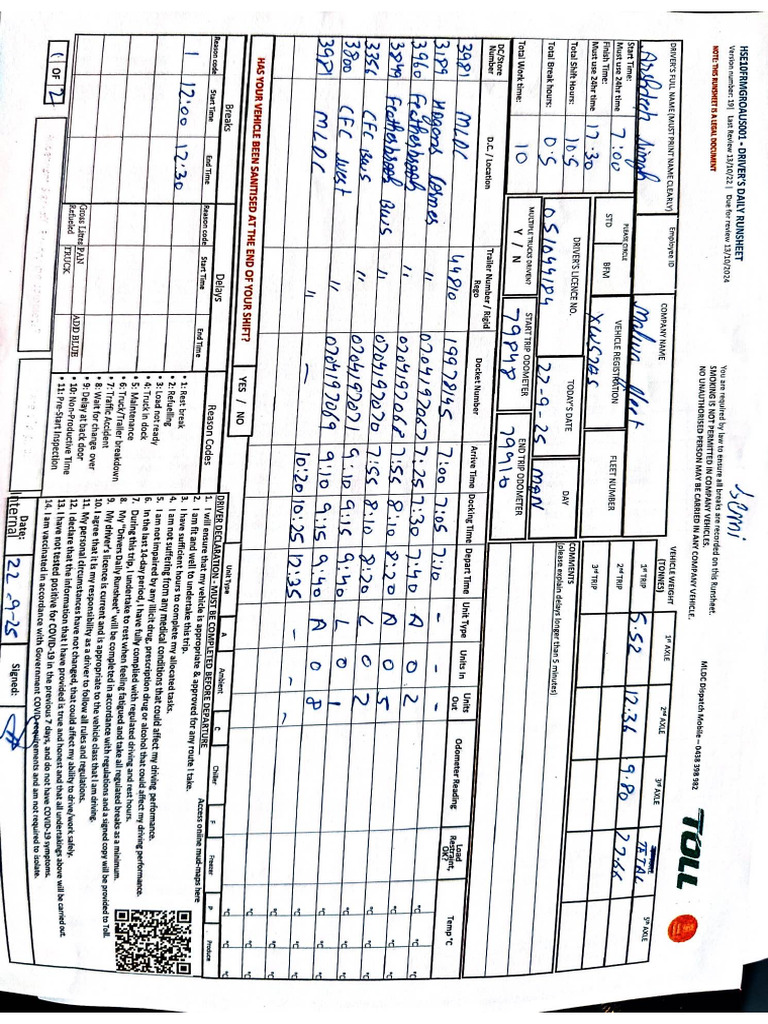 HSE10FRMGROAUS001 - DRIVER'S DAILY RUNSHEET
Version number: 19 | Last Review 13/10/22 | Due for review 13/10/2024
NOTE: THIS RUNSHEET IS A LEGAL DOCUMENT
You are required by law to ensure all breaks are recorded on this Runsheet.
SMOKING IS NOT PERMITTED IN COMPANY VEHICLES.
NO UNAUTHORISED PERSON MAY BE CARRIED IN ANY COMPANY VEHICLE.
Isemi
MLDC Dispatch Mobile – 0438 398 982
TOLL
DRIVER'S FULL NAME (MUST PRINT NAME CLEARLY)
Employee ID
COMPANY NAME
Malwa fleet
Singh
VEHICLE WEIGHT (TONNES)
1st AXLE 2nd AXLE 3rd AXLE TOTAL 5th AXLE
1st TRIP 5.52 12.36 9.80
2nd TRIP
3rd TRIP
Start Time: Must use 24hr time 7:00
Finish Time: Must use 24hr time 17:30
PLEASE CIRCLE
STD BFM
VEHICLE REGISTRATION
FLEET NUMBER
Total Shift Hours: 10.5
DRIVER'S LICENCE NO.
TODAY'S DATE
DAY
Total Break hours: 0.5
051044184
22-9-25
MON
COMMENTS
(please explain delays longer than 5 minutes)
Total Work time: 10
MULTIPLE TRUCKS DRIVEN?
Y / N
START TRIP ODOMETER
79848
END TRIP ODOMETER
79910
DC/Store Number D.C. / Location Trailer Number / Rigid Rego Docket Number Arrive Time Docking Time Depart Time Unit Type Units In Units Out Odometer Reading Load Restraint, OK? Temp °C
3981 MLDC 44810 19978145 7:00 7:05 7:10 - - -
3189 " 0204192067 7:25 7:30 7:40 A 0 2
3960 Featherbrook " 0204192068 7:55 8:10 8:20 A 0 5
3849 Featherbrook BWS " 0204192070 7:55 8:10 8:20 L 0 2
3356 CFC BWS " 0204192071 9:10 9:15 9:40 L 0 1
3800 CFC West " 0204192069 9:10 9:15 9:40 A 0 8
3981 MLDC " - 10:20 10:25 12:35 - - -
HAS YOUR VEHICLE BEEN SANITISED AT THE END OF YOUR SHIFT? YES / NO
Unit Type A Ambient C Chiller F Freezer P Produce
Breaks
Reason code Start Time End Time
1 12:00 12:30
Delays
Reason code Start Time End Time
Gross Litres Refueled
PAN
TRUCK
ADD BLUE
1 OF 2
Reason Codes
• 1: Rest break
• 2: Refuelling
• 3: Load not ready
• 4: Truck in dock
• 5: Maintenance
• 6: Truck/Trailer breakdown
• 7: Traffic Accident
• 8: Wait for change over
• 9: Delay at back door
• 10: Non-Productive Time
• 11: Pre-Start Inspection
DRIVER DECLARATION - MUST BE COMPLETED BEFORE DEPARTURE
Access online mud-maps here
1. I will ensure that my vehicle is appropriate & approved for any route I take.
2. I am fit and well to undertake this trip.
3. I have sufficient hours to complete my allocated tasks.
4. I am not suffering from any medical conditions that could affect my driving performance.
5. I am not impaired by any illicit drug, prescription drug or alcohol that could affect my driving performance.
6. In the last 14-day period, I have fully complied with regulated driving and rest hours.
7. During this trip, I undertake to rest when feeling fatigued and take all regulated breaks as a minimum.
8. My "Drivers Daily Runsheet" will be completed in accordance with regulations and a signed copy will be provided to Toll.
9. My driver's licence is current and is appropriate to the vehicle class that I am driving.
10. I agree that it is my responsibility as a driver to follow all rules and regulations.
11. My personal circumstances have not changed, that could affect my ability to drive/work safely.
12. I declare that the information that I have provided is true and honest and that all undertakings above will be carried out.
13. I have not tested positive for COVID-19 in the previous 7 days, and do not have COVID-19 symptoms.
14. I am vaccinated in accordance with Government COVID requirements and am not required to isolate.
Date: 22-9-25 Signed:
Internal